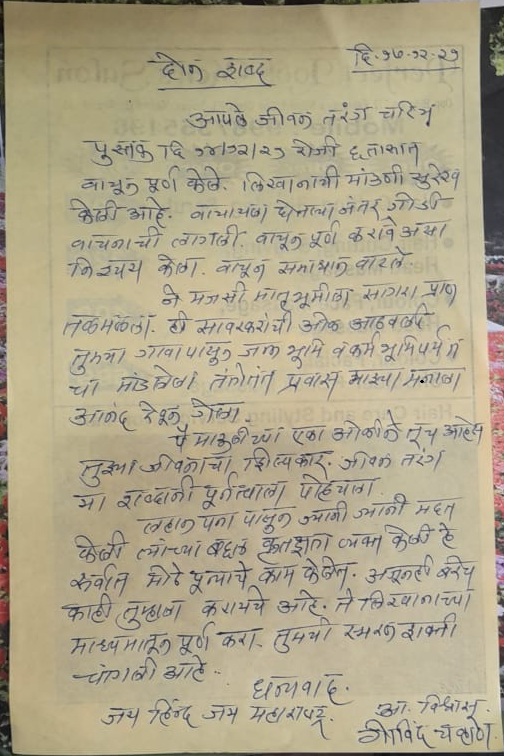 दोन शब्द
दि. १७-१२-२१
आपले जीवन तरंग चरित्र
पुस्तक दि १४/१२/२१ रोजी हातात
वाचून पूर्ण केले. लिखानाची मांडणी सुरेख
केली आहे. वाचायला घेतल्या नंतर गोडी
वाचनाची लागली. वाचून पूर्ण करावे असा
निश्चय केला. वाचून समाधान वाटले.
ने मजसी मातृभूमीला सागरा प्राण
तळमळला. ही सावरकरांची ओळ आठवली
तुमच्या गावा पासून जन्म भूमि व कर्म भूमिपर्यंत
चा मांडलेला तंतोतंत प्रवास माझ्या मनाला
आनंद देवून गेला
पै माऊलीच्या एका ओळीने तूच आहेस
तुझ्या जीवनाचा शिल्पकार. जीवन तरंग
या शब्दानी पूर्णत्वाला पोहचला.
लहान पणा पासून ज्यानी ज्यानी मदत
केली त्यांच्या बद्दल कृतज्ञता व्यक्त केली हे
सर्वात मोठे पून्याचे काम केलेत. अजूनही बरेच
काही तुम्हाला करायचे आहे. ते लिखानाच्या
माध्यमातून पूर्ण करा. तुमची स्मरण शक्ती
चांगली आहे.
धन्यवाद.
जय हिन्द जय महाराष्ट्र
आ. विश्वासू
गोविंद चव्हाण